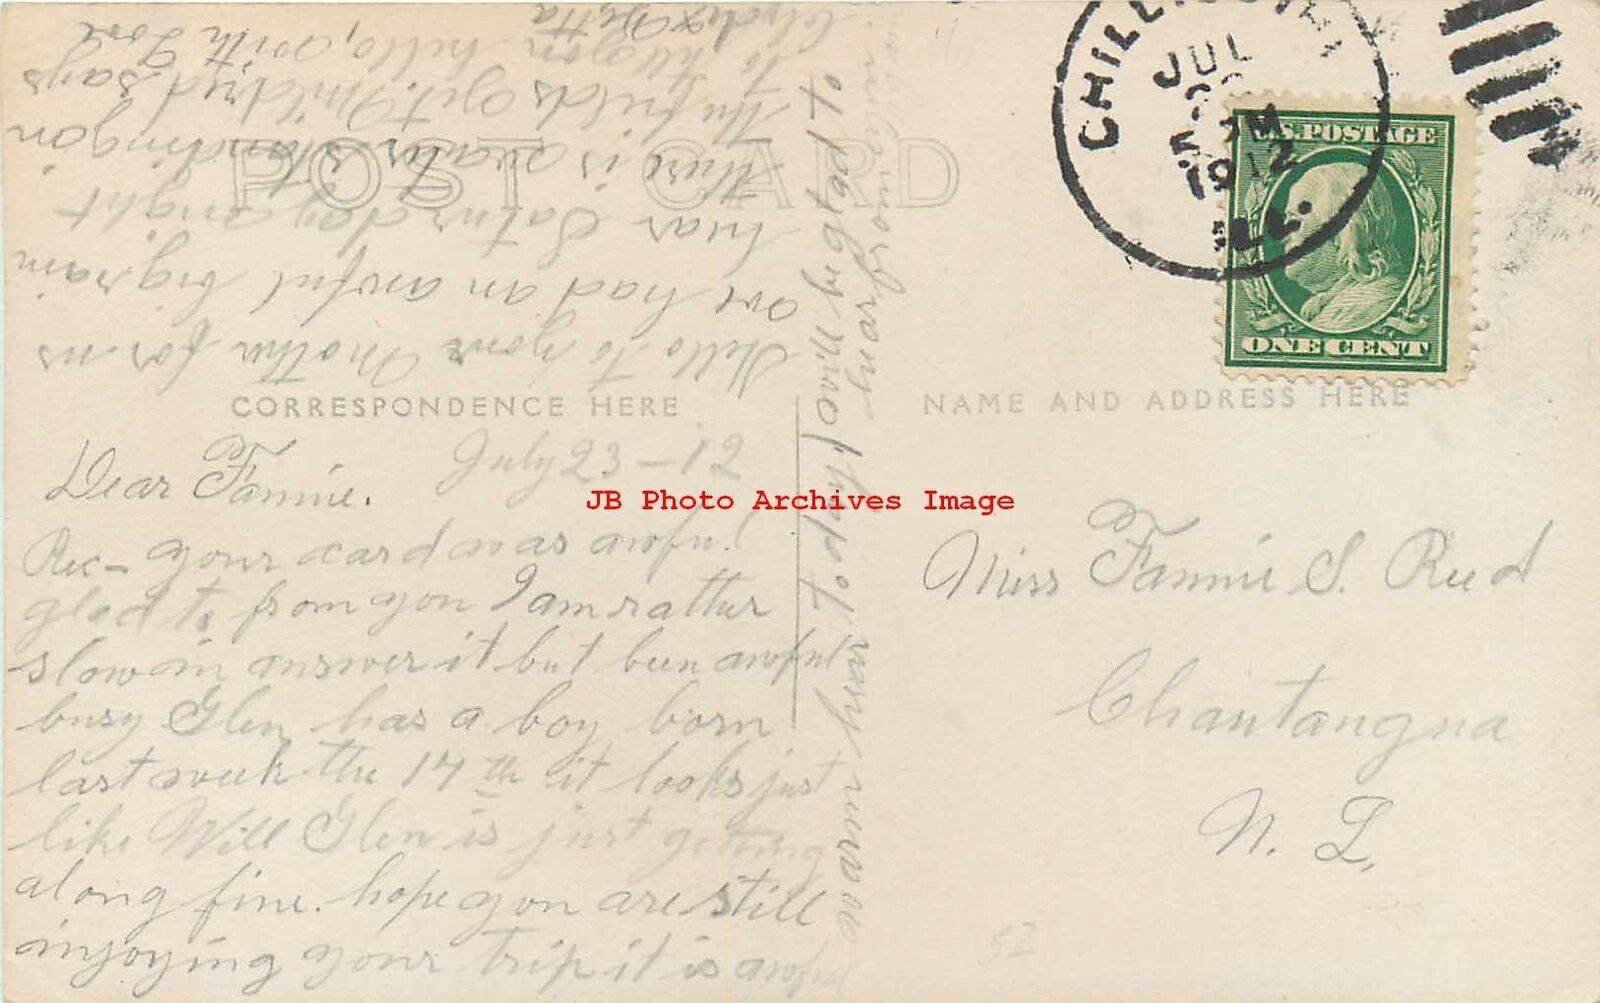 POST CARD
CHILLICOTHE
JUL
PM
1912
ILL.
U.S. POSTAGE
ONE CENT
CORRESPONDENCE HERE
NAME AND ADDRESS HERE
July 23-12
Dear Fannie.
Rec- your card was awful
glad to from you I am rather
slow in answer it but been awful
busy Glen has a boy born
last week the 17th it looks just
like Will Glen is just getting
along fine. hope you are still
injoying your trip it is awful
very warm
to day
Hello to your Mother for us
we had an awful big rain
hear Saturday night
there is water standing on
the fields yet. Mildred says
to tell you hello, with Love
Clyde & Detta
Miss Fannie S. Reed
Chautauqua
N. Y.
52
JB Photo Archives Image